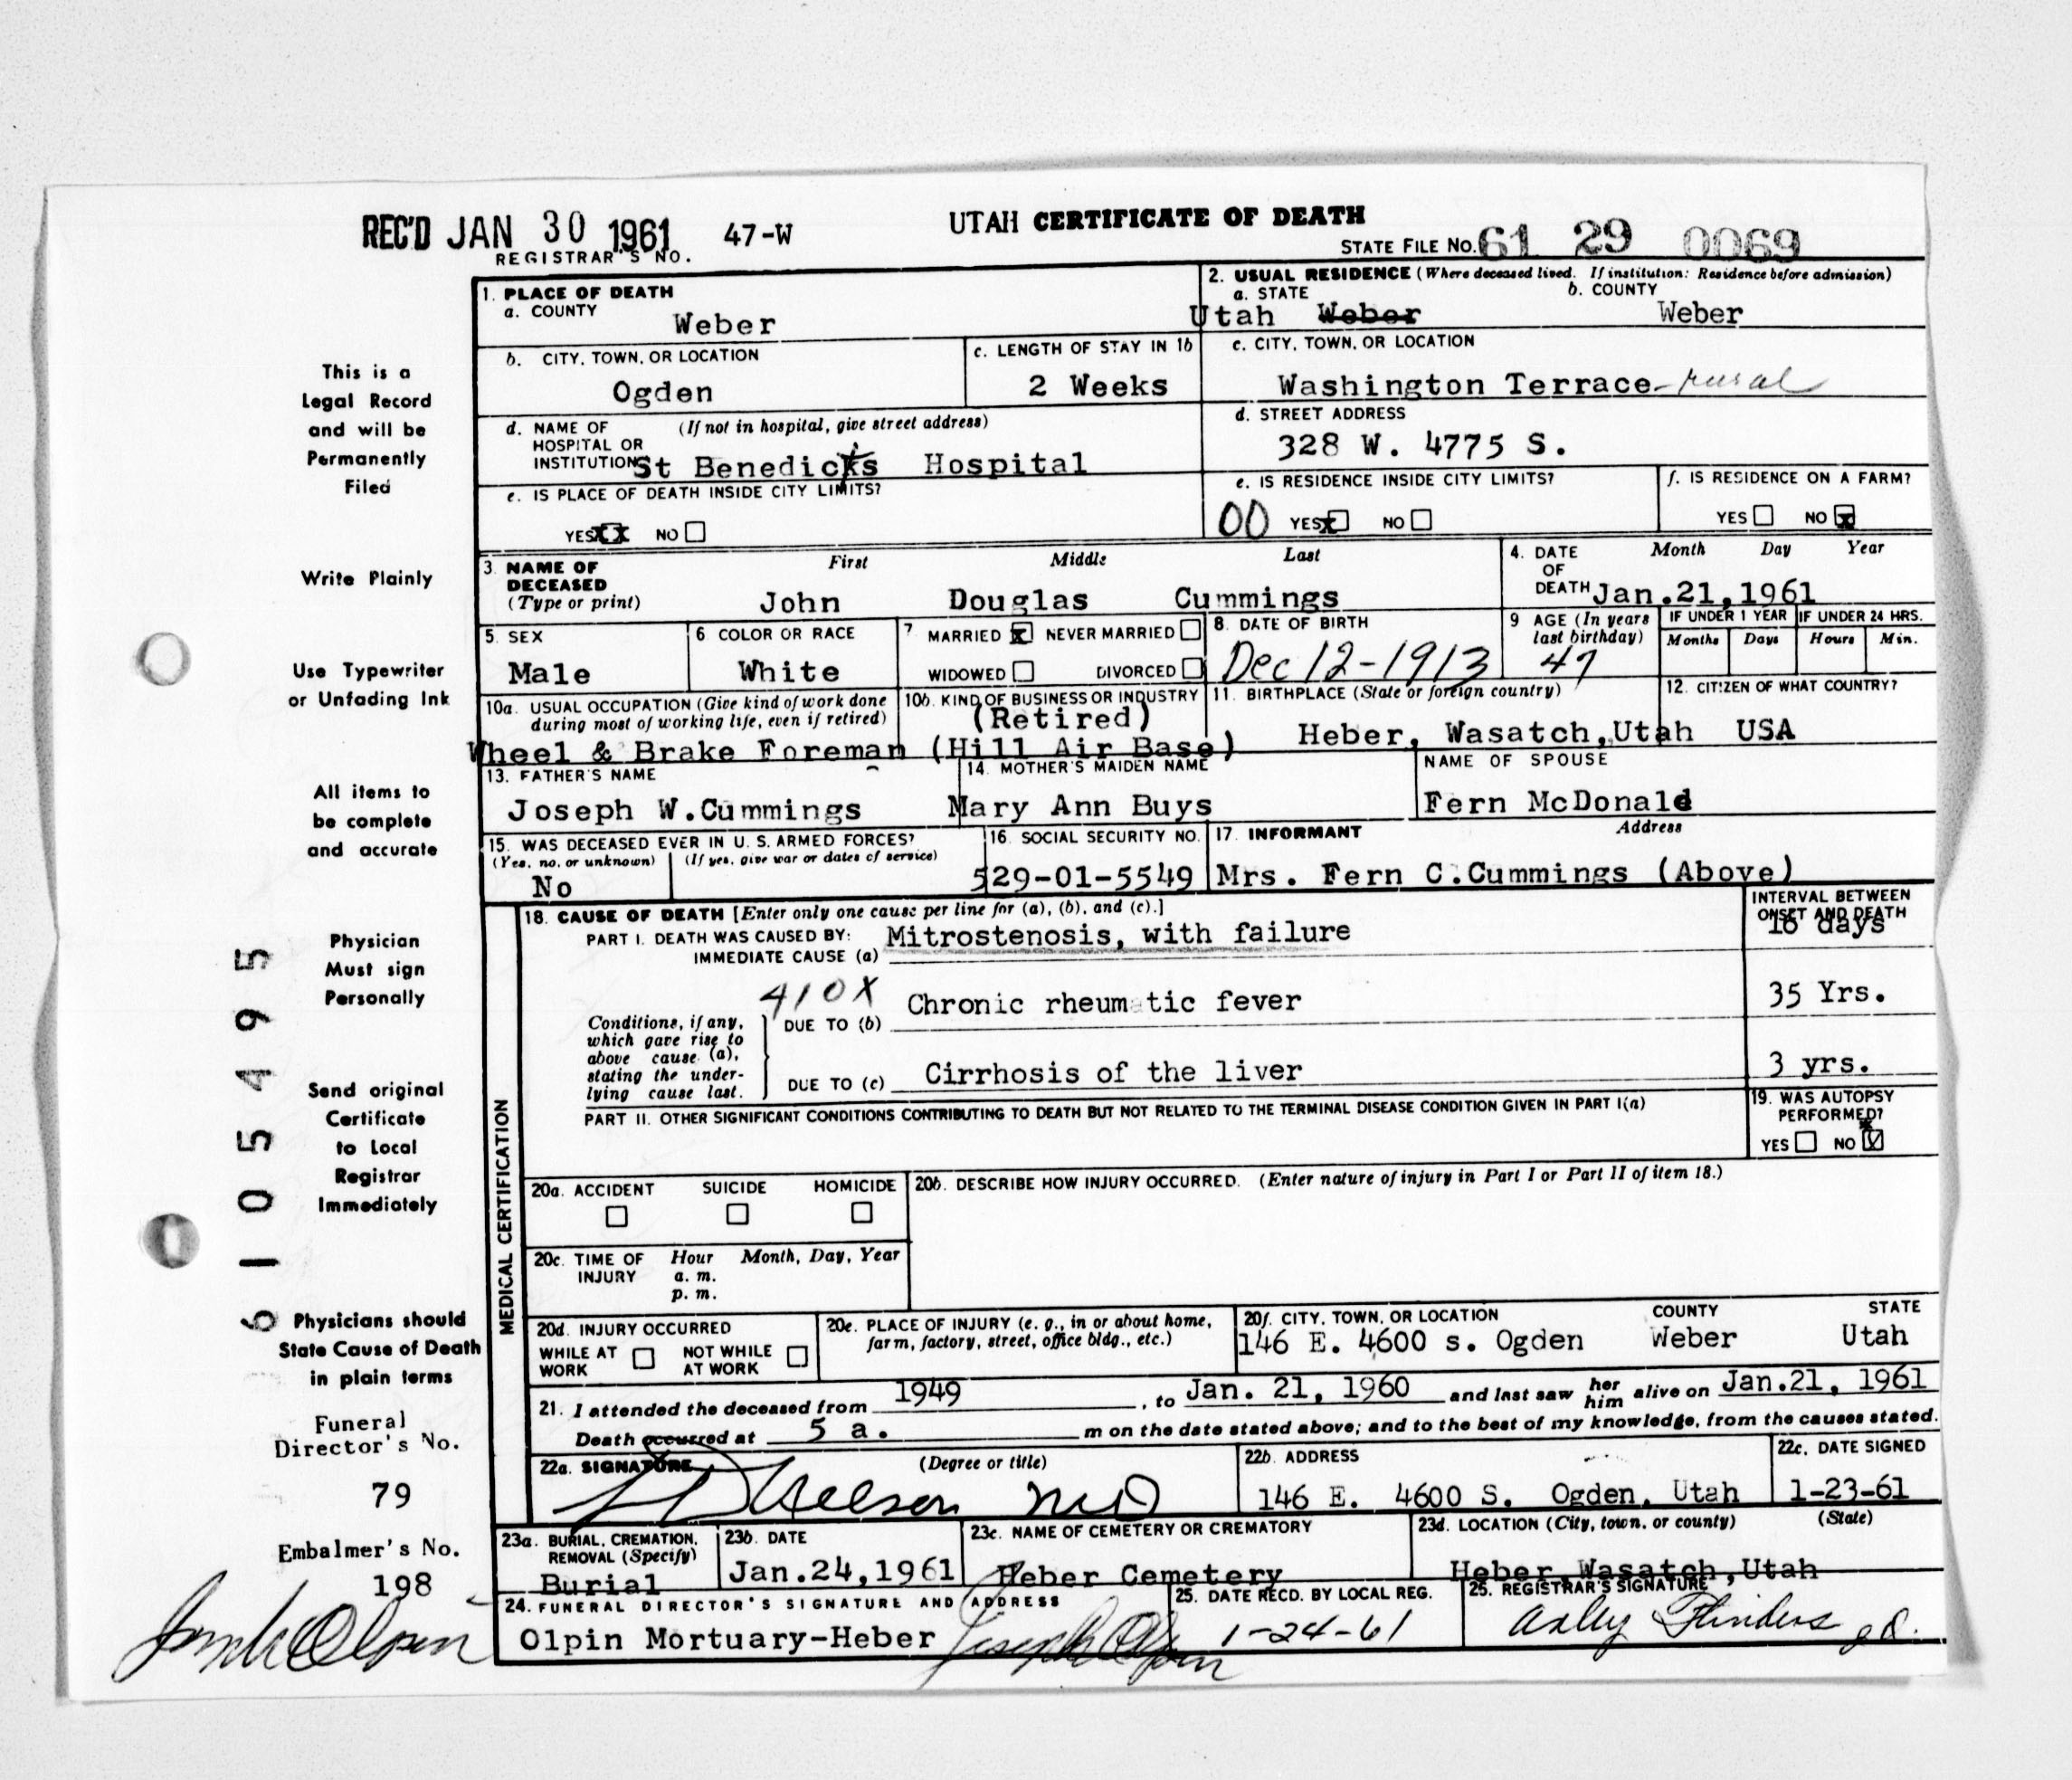 REC'D JAN 30 1961 47-W UTAH CERTIFICATE OF DEATH
REGISTRAR'S NO. STATE FILE NO. 61 29 0069
1. PLACE OF DEATH
a. COUNTY
Weber
2. USUAL RESIDENCE (Where deceased lived. If institution: Residence before admission)
a. STATE b. COUNTY
Utah Weber Weber
b. CITY, TOWN, OR LOCATION
Ogden
c. LENGTH OF STAY IN 1b
2 Weeks
c. CITY, TOWN, OR LOCATION
Washington Terrace-rural
d. NAME OF (If not in hospital, give street address)
HOSPITAL OR
INSTITUTION St Benedicts Hospital
d. STREET ADDRESS
328 W. 4775 S.
e. IS PLACE OF DEATH INSIDE CITY LIMITS?
YES XX NO
e. IS RESIDENCE INSIDE CITY LIMITS?
00 YES X NO
f. IS RESIDENCE ON A FARM?
YES NO X
3. NAME OF
DECEASED
(Type or print)
First Middle Last
John Douglas Cummings
4. DATE Month Day Year
OF
DEATH Jan.21,1961
5. SEX
Male
6 COLOR OR RACE
White
7 MARRIED X NEVER MARRIED
WIDOWED DIVORCED
8. DATE OF BIRTH
Dec 12-1913
9 AGE (In years
last birthday)
47
IF UNDER 1 YEAR IF UNDER 24 HRS.
Months Days Hours Min.
10a. USUAL OCCUPATION (Give kind of work done
during most of working life, even if retired)
10b. KIND OF BUSINESS OR INDUSTRY
(Retired)
Wheel & Brake Foreman (Hill Air Base)
11. BIRTHPLACE (State or foreign country)
Heber, Wasatch,Utah
12. CITIZEN OF WHAT COUNTRY?
USA
13. FATHER'S NAME
Joseph W.Cummings
14. MOTHER'S MAIDEN NAME
Mary Ann Buys
NAME OF SPOUSE
Fern McDonald
15. WAS DECEASED EVER IN U. S. ARMED FORCES?
(Yes, no, or unknown) (If yes, give war or dates of service)
No
16. SOCIAL SECURITY NO.
529-01-5549
17. INFORMANT Address
Mrs. Fern C.Cummings (Above)
MEDICAL CERTIFICATION
18. CAUSE OF DEATH [Enter only one cause per line for (a), (b), and (c).]
PART I. DEATH WAS CAUSED BY: Mitrostenosis, with failure
IMMEDIATE CAUSE (a)
INTERVAL BETWEEN
ONSET AND DEATH
16 days
410X Chronic rheumatic fever 35 Yrs.
DUE TO (b)
Conditions, if any,
which gave rise to
above cause (a),
stating the under-
lying cause last.
Cirrhosis of the liver 3 yrs.
DUE TO (c)
PART II. OTHER SIGNIFICANT CONDITIONS CONTRIBUTING TO DEATH BUT NOT RELATED TO THE TERMINAL DISEASE CONDITION GIVEN IN PART I(a)
19. WAS AUTOPSY
PERFORMED?
YES NO
20a. ACCIDENT SUICIDE HOMICIDE
20b. DESCRIBE HOW INJURY OCCURRED. (Enter nature of injury in Part I or Part II of item 18.)
20c. TIME OF Hour Month, Day, Year
INJURY a. m.
p. m.
20d. INJURY OCCURRED
WHILE AT NOT WHILE
WORK AT WORK
20e. PLACE OF INJURY (e. g., in or about home,
farm, factory, street, office bldg., etc.)
20f. CITY, TOWN, OR LOCATION COUNTY STATE
146 E. 4600 s. Ogden Weber Utah
21. I attended the deceased from 1949, to Jan. 21, 1960 and last saw her him alive on Jan.21, 1961
Death occurred at 5 a. m on the date stated above; and to the best of my knowledge, from the causes stated.
22a. SIGNATURE (Degree or title)
Nelson MD
22b. ADDRESS
146 E. 4600 S. Ogden, Utah
22c. DATE SIGNED
1-23-61
23a. BURIAL, CREMATION,
REMOVAL (Specify)
Burial
23b. DATE
Jan.24,1961
23c. NAME OF CEMETERY OR CREMATORY
Heber Cemetery
23d. LOCATION (City, town, or county) (State)
Heber,Wasatch,Utah
24. FUNERAL DIRECTOR'S SIGNATURE AND ADDRESS
Olpin Mortuary-Heber Joseph Olpin
25. DATE RECD. BY LOCAL REG.
1-24-61
25. REGISTRAR'S SIGNATURE
Flinders
This is a
Legal Record
and will be
Permanently
Filed
Write Plainly
Use Typewriter
or Unfading Ink
All items to
be complete
and accurate
Physician
Must sign
Personally
Send original
Certificate
to Local
Registrar
Immediately
Physicians should
State Cause of Death
in plain terms
Funeral
Director's No.
79
Embalmer's No.
198
Olpin
6105495